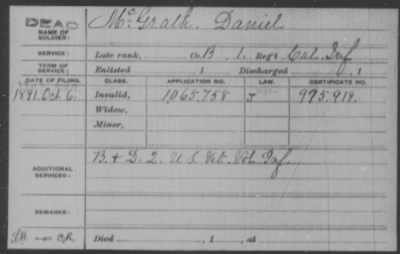 DEAD
NAME OF SOLDIER: McGrath, Daniel
SERVICE: Late rank, Co. B, 1 Reg't Cal. Inf
TERM OF SERVICE: Enlisted 1 Discharged , 1
DATE OF FILING. CLASS. APPLICATION NO. LAW. CERTIFICATE NO.
1891. Oct 6 Invalid, 1065.758 J 975.919.
Widow,
Minor,
ADDITIONAL SERVICES: B. & D. 2. U S. Vet. Vol. Inf.
REMARKS:
Died , 1 , at